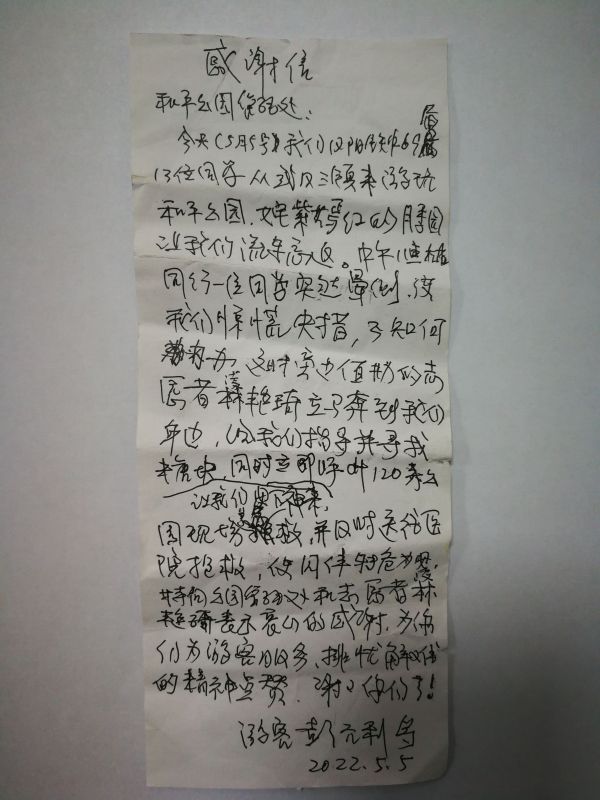 感谢信
和平公园管理处：
今天（5月5号）我们汉阳铁中69届
13位同学从武汉三镇来游玩
和平公园，姹紫嫣红的月季园
让我们流连忘返。中午11点左右
同行一位同学突然晕倒，使
我们惊慌失措，不知何
办 这时旁边值勤的志
愿者林艳琦立马奔到我们
身边，给我们指导并寻找
糖块，同时立即呼叫120来公
让我们坐下神来，
园现场抢救，并及时送往医
院抢救，使同伴转危为
特向公园管理处和志愿者林
艳琦表示衷心的感谢，为你
们为游客服务，排忧解难
的精神点赞，谢谢你们了！
游客 彭 利 写
2022.5.5